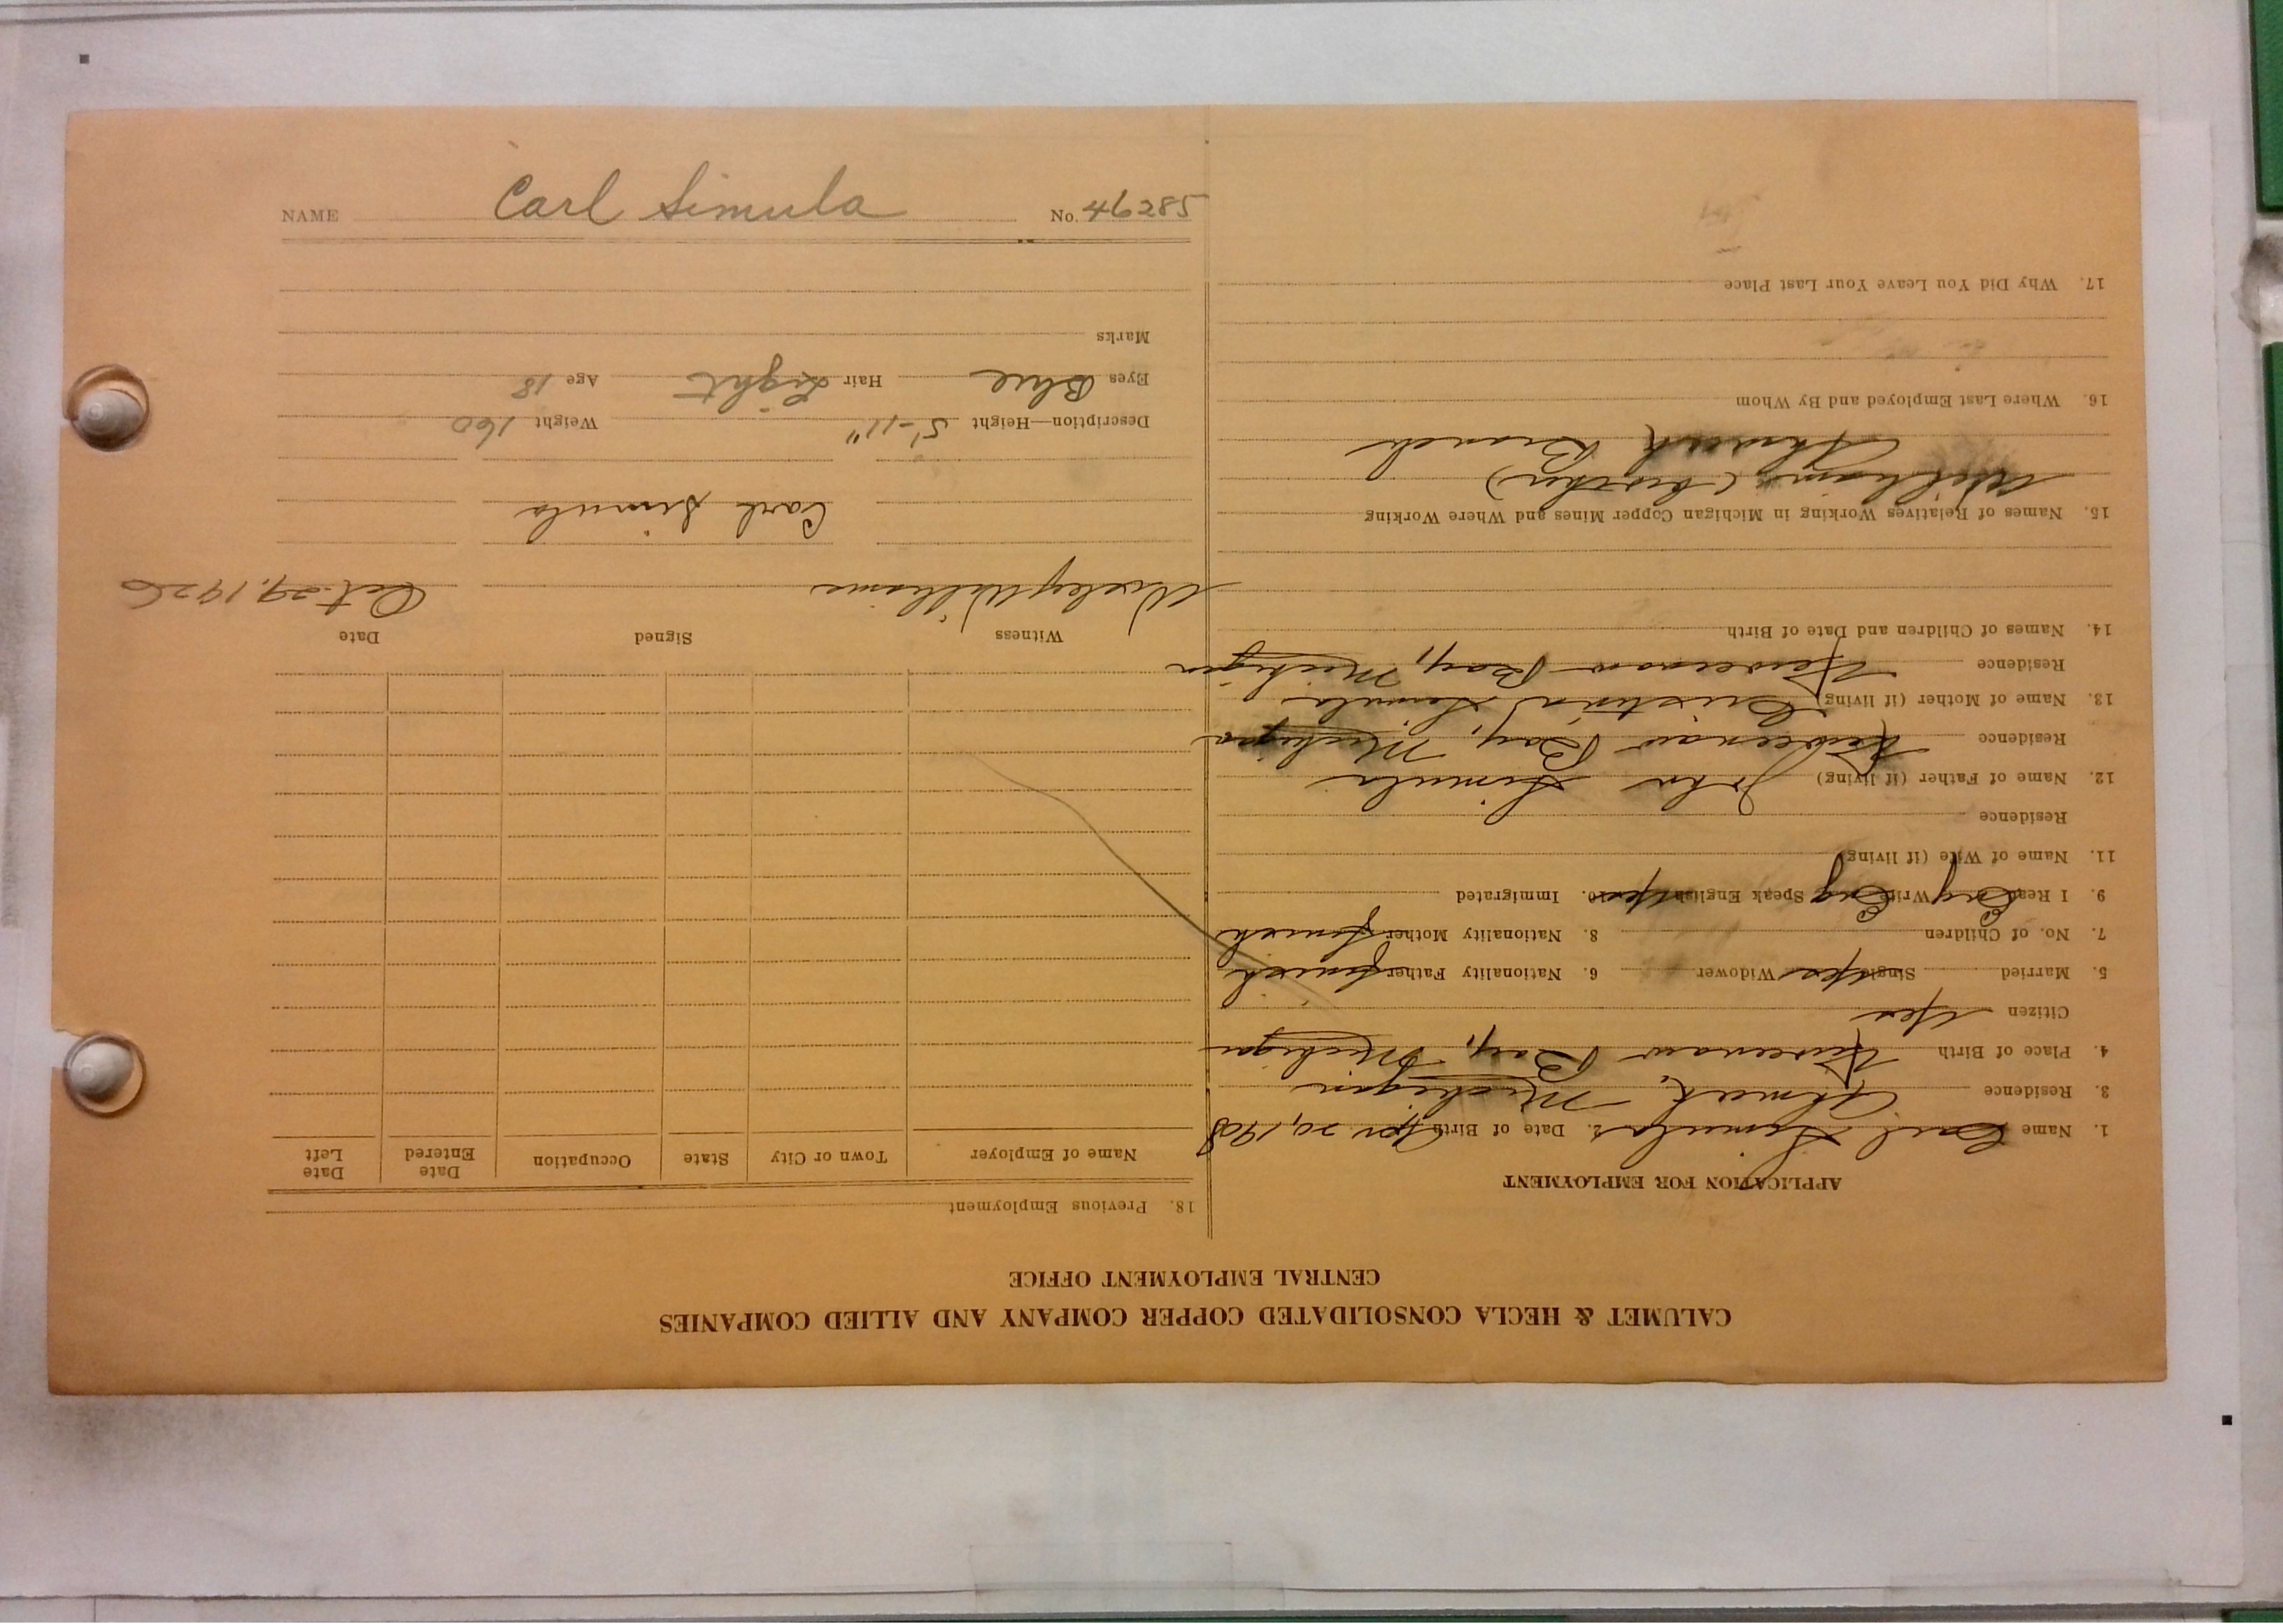 NAME Carl Simula No. 46285
CALUMET & HECLA CONSOLIDATED COPPER COMPANY AND ALLIED COMPANIES
CENTRAL EMPLOYMENT OFFICE
APPLICATION FOR EMPLOYMENT
1. Name Carl Simula 2. Date of Birth Apr 20, 1908
3. Residence Ahmeek, Michigan
4. Place of Birth Keweenaw Bay, Michigan
Citizen Yes
5. Married Single Yes Widower 6. Nationality Father Finnish
7. No. of Children 8. Nationality Mother Finnish
9. I Read Eng Write Eng Speak English Yes 10. Immigrated
11. Name of Wife (if living)
Residence
12. Name of Father (if living) John Simula
Residence Keweenaw Bay, Michigan
13. Name of Mother (if living) Simula
Residence Keweenaw Bay, Michigan
14. Names of Children and Date of Birth
15. Names of Relatives Working in Michigan Copper Mines and Where Working
(brother)
Ahmeek Branch
16. Where Last Employed and By Whom
17. Why Did You Leave Your Last Place
18. Previous Employment
Name of Employer Town or City State Occupation Date Entered Date Left
Witness Signed Date
Wesley Williams Oct. 29, 1926
Carl Simula
Description—Height 5'-11" Weight 160
Eyes Blue Hair Light Age 18
Marks